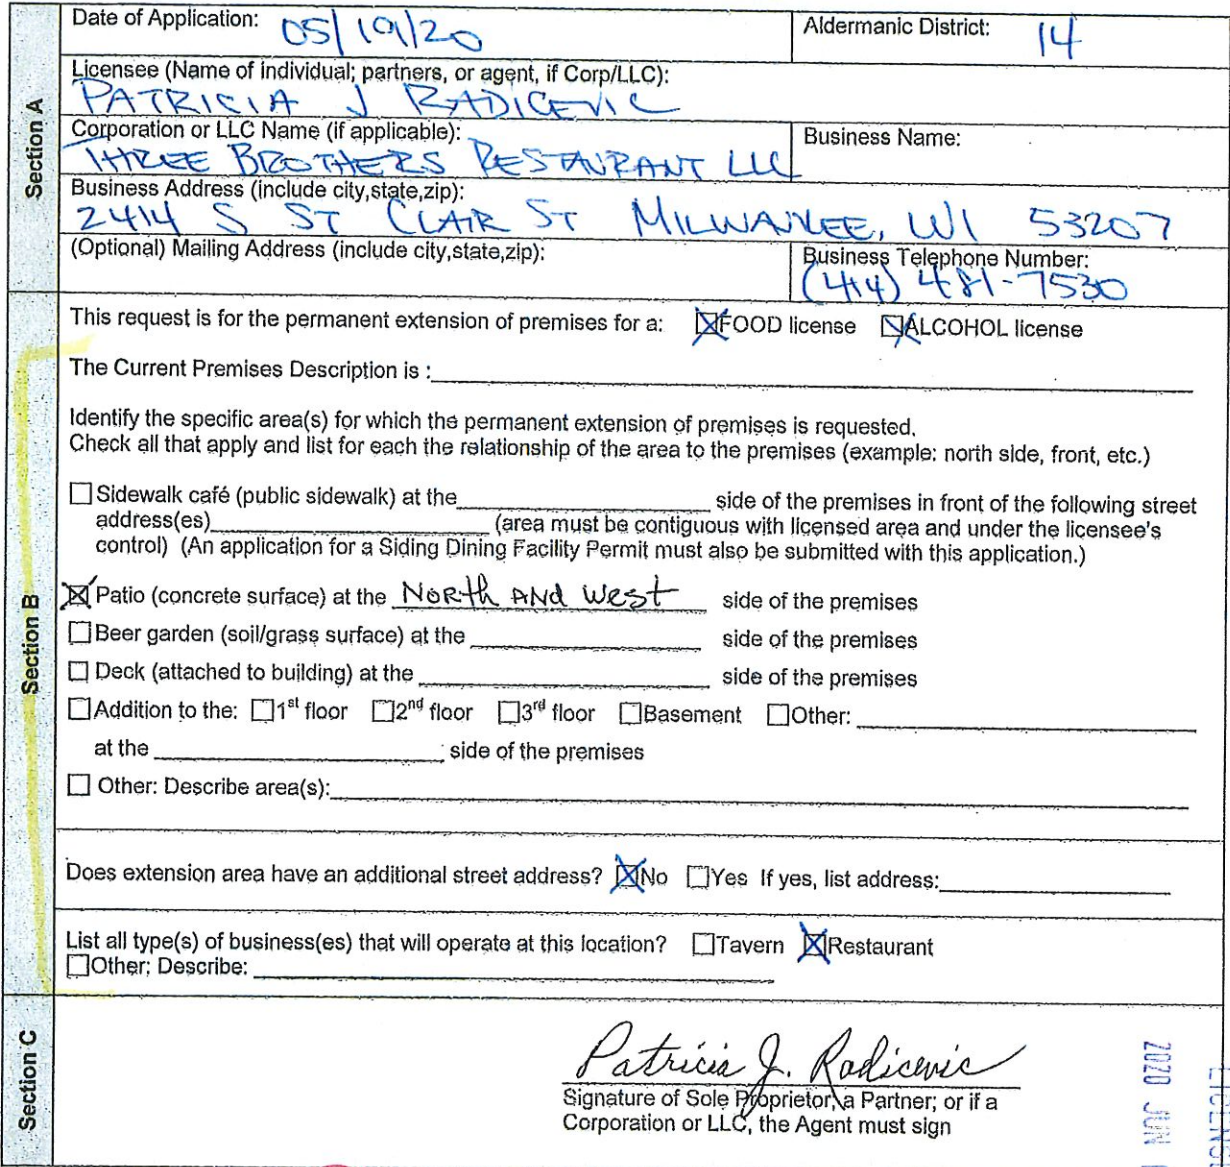 Date of Application: 05/19/20 Aldermanic District: 14
Licensee (Name of individual; partners, or agent, if Corp/LLC):
PATRICIA J RADICEVIC
Corporation or LLC Name (if applicable): Business Name:
THREE BROTHERS RESTAURANT LLC
Business Address (include city,state,zip):
2414 S ST CLAIR ST MILWAUKEE, WI 53207
(Optional) Mailing Address (include city,state,zip): Business Telephone Number:
(414) 481-7530
Section A
This request is for the permanent extension of premises for a: ☒FOOD license ☒ALCOHOL license
The Current Premises Description is :
Identify the specific area(s) for which the permanent extension of premises is requested.
Check all that apply and list for each the relationship of the area to the premises (example: north side, front, etc.)
☐Sidewalk café (public sidewalk) at the side of the premises in front of the following street
address(es) (area must be contiguous with licensed area and under the licensee's
control) (An application for a Siding Dining Facility Permit must also be submitted with this application.)
☒Patio (concrete surface) at the NORth ANd West side of the premises
☐Beer garden (soil/grass surface) at the side of the premises
☐ Deck (attached to building) at the side of the premises
☐Addition to the: ☐1st floor ☐2nd floor ☐3rd floor ☐Basement ☐Other:
at the side of the premises
☐ Other: Describe area(s):
Does extension area have an additional street address? ☒No ☐Yes If yes, list address:
List all type(s) of business(es) that will operate at this location? ☐Tavern ☒Restaurant
☐Other; Describe:
Section B
Patricia J. Radicevic
Signature of Sole Proprietor, a Partner; or if a
Corporation or LLC, the Agent must sign
Section C
2020 JUN